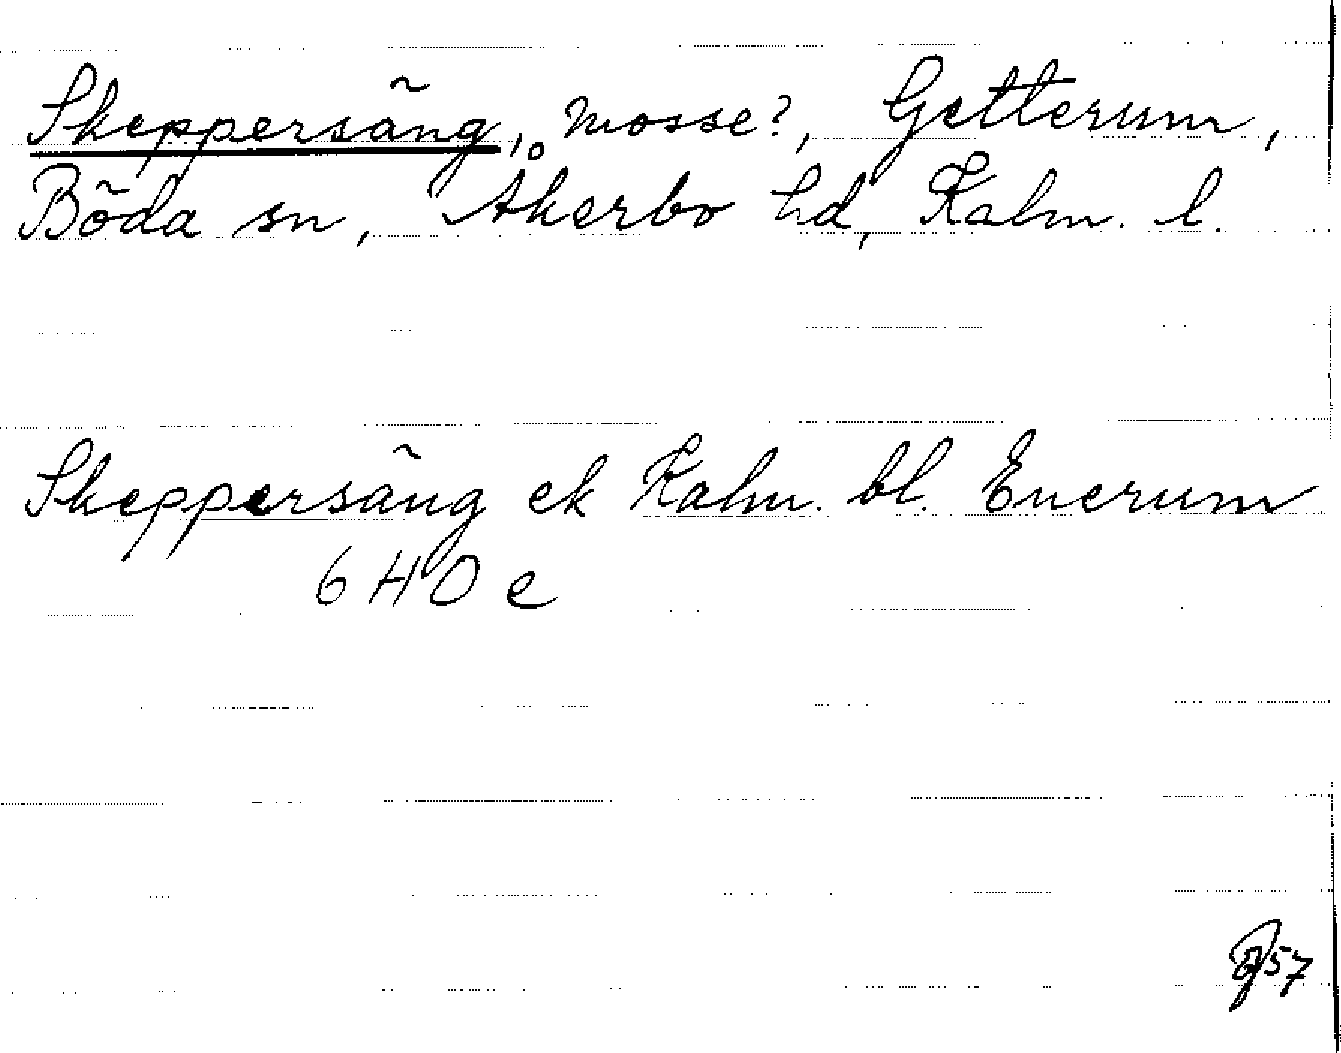 Skeppersäng, mosse?, Getterum,
Böda sn, Åkerbo hd, Kalm. l.
Skeppersäng ek Kalm. bl. Enerum
6 H 0 e
57